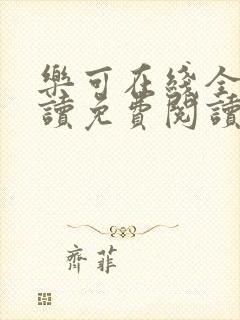 樂可在綫全
讀免費閱讀
齊菲